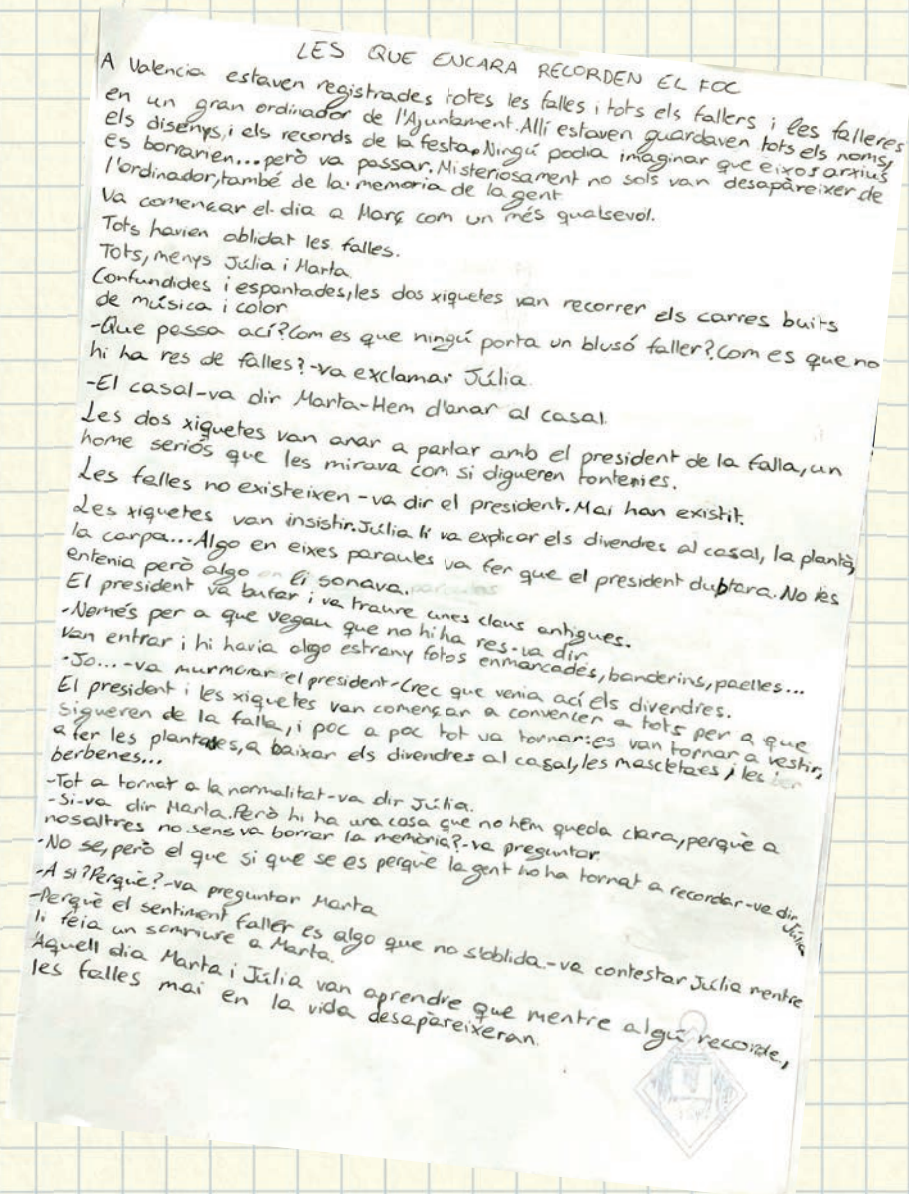 LES QUE ENCARA RECORDEN EL FOC
A Valencia estaven registrades totes les falles i tots els fallers i les falleres
en un gran ordinador de l'Ajuntament. Allí estaven guardaven tots els noms,
els disenys, i els records de la festa. Ningú podia imaginar que eixos arxius
es borrarien... però va passar. Misteriosament no sols van desapàreixer de
l'ordinador, també de la memoria de la gent
Va comencar el dia a Març com un més qualsevol.
Tots havien oblidat les falles.
Tots, menys Júlia i Marta.
Confundides i espantades, les dos xiquetes van recorrer els carres buits
de música i color
-Que passa ací? Com es que ningú porta un blusó faller? Com es que no
hi ha res de falles? -va exclamar Júlia.
-El casal-va dir Marta-Hem d'anar al casal.
Les dos xiquetes van anar a parlar amb el president de la falla, un
home seriós que les mirava com si digueren tonteries.
Les falles no existeixen -va dir el president. Mai han existit.
Les xiquetes van insistir. Júlia li va explicar els divendres al casal, la plantà,
la carpa... Algo en eixes paraules va fer que el president dubtara. No les
entenia però algo li sonava.
El president va bufar i va traure unes claus antigues.
-Només per a que vegau que no hi ha res-va dir
Van entrar i hi havia algo estrany fotos enmarcades, banderins, paelles...
-Jo... -va murmurar el president-Crec que venia ací els divendres.
El president i les xiquetes van començar a convencer a tots per a que
sigueren de la falla, i poc a poc tot va tornar: es van tornar a vestir,
a fer les plantaes, a baixar els divendres al casal, les mascletaes i les
berbenes...
-Tot a tornat a la normalitat-va dir Júlia.
-Si-va dir Marta. Però hi ha una cosa que no hem queda clara, perquè a
nosaltres no sens va borrar la memòria?-va preguntar.
-No se, però el que si que se es perquè la gent ho ha tornat a recordar-va dir Júlia
-A si? Perquè?-va preguntar Marta
-Perquè el sentiment faller es algo que no s'oblida.-va contestar Júlia mentre
li feia un somriure a Marta.
Aquell dia Marta i Júlia van aprendre que mentre algú recorde,
les falles mai en la vida desapareixeran.